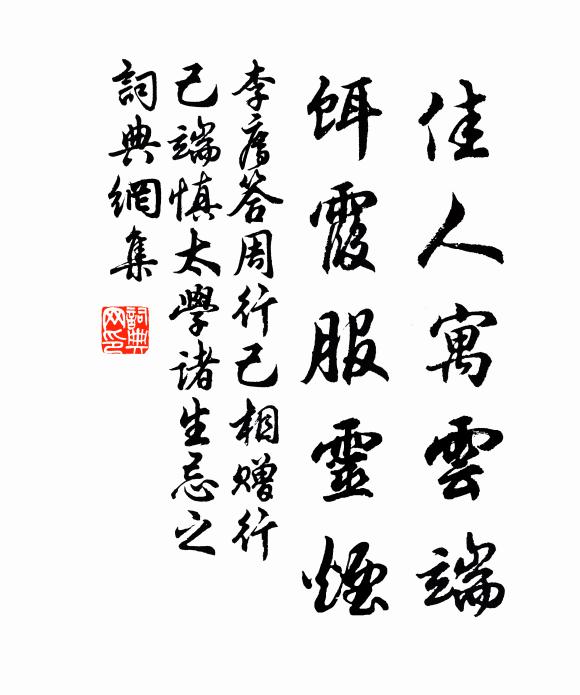 佳人寓雲端
餌霞服靈煙
李廌答周行己相贈行
己端慎太學諸生忌之
詞典網集
詞典网印